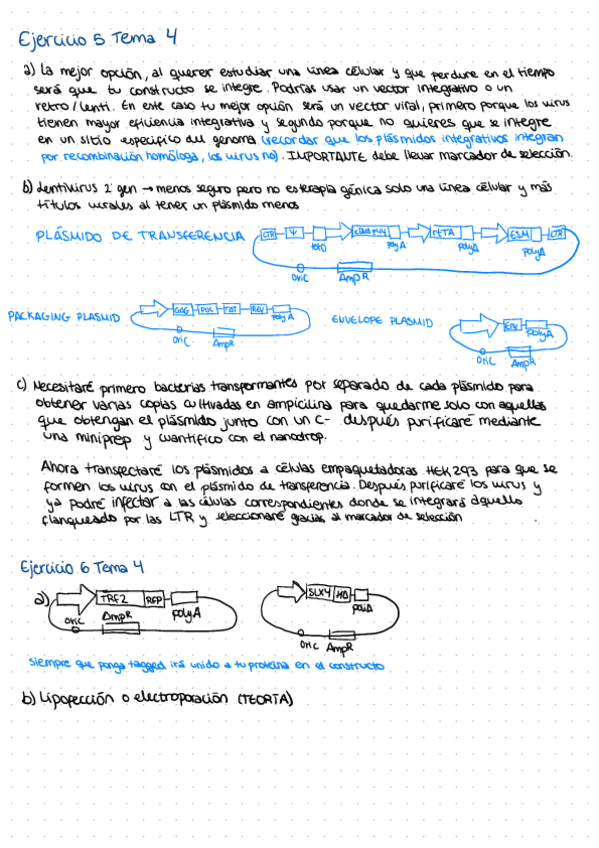 Ejercicio 5 Tema 4
a) La mejor opción, al querer estudiar una línea celular y que perdure en el tiempo
será que tu constructo se integre. Podrías usar un vector integrativo o un
retro/lenti. En este caso tu mejor opción será un vector viral, primero porque los virus
tienen mayor eficiencia integrativa y segundo porque no quieres que se integre
en un sitio específico del genoma (recordar que los plásmidos integrativos integran
por recombinación homóloga, los virus no). IMPORTANTE debe llevar marcador de selección.
b) Lentivirus 2 gen → menos seguro pero no es terapia génica solo una línea celular y más
títulos virales al tener un plásmido menos
PLÁSMIDO DE TRANSFERENCIA
LTR Ψ tetO polyA polyA polyA LTR
oriC AmpR
PACKAGING PLASMID GAG POL TAT REV polyA
oriC AmpR
ENVELOPE PLASMID ENV polyA
oriC AmpR
c) Necesitaré primero bacterias transformantes por separado de cada plásmido para
obtener varias copias cultivadas en ampicilina para quedarme solo con aquellas
que obtengan el plásmido junto con un C- después purificaré mediante
una miniprep y cuantifico con el nanodrop.
Ahora transfectaré los plásmidos a células empaquetadoras HEK293 para que se
formen los virus con el plásmido de transferencia. Después purificaré los virus y
ya podré infectar a las células correspondientes donde se integrará aquello
flanqueado por las LTR y seleccionaré gracias al marcador de selección
Ejercicio 6 Tema 4
a) TRF2 RFP polyA
oriC AmpR
SLX4 HA polyA
oriC AmpR
siempre que ponga tagged irá unido a tu proteína en el constructo
b) Lipofección o electroporación (TEORÍA)